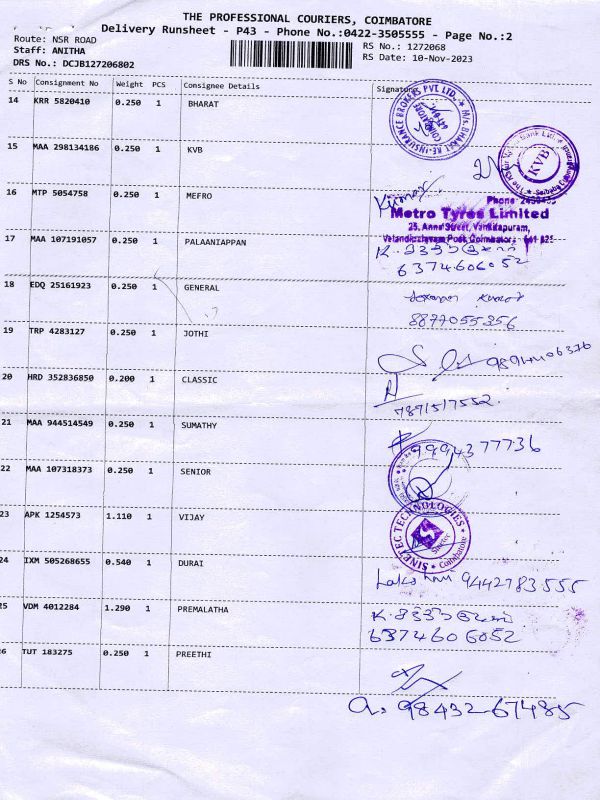 THE PROFESSIONAL COURIERS, COIMBATORE
Delivery Runsheet - P43 - Phone No.:0422-3505555 - Page No.:2
Route: NSR ROAD RS No.: 1272068
Staff: ANITHA RS Date: 10-Nov-2023
DRS No.: DCJB127206802
S No Consignment No Weight PCS Consignee Details Signature
14 KRR 5820410 0.250 1 BHARAT
M/s. BHARAT RE-INSURANCE BROKERS PVT. LTD.
15 MAA 298134186 0.250 1 KVB
KVB
16 MTP 5054758 0.250 1 MEFRO
Kumar
Phone
Metro Tyres Limited
25, Anna Street, Varathapuram,
17 MAA 107191057 0.250 1 PALAANIAPPAN
6374606052
18 EDQ 25161923 0.250 1 GENERAL
Kumar
8877055356
19 TRP 4283127 0.250 1 JOTHI
20 HRD 352836850 0.200 1 CLASSIC
7871517552
21 MAA 944514549 0.250 1 SUMATHY
9994377736
22 MAA 107318373 0.250 1 SENIOR
23 APK 1254573 1.110 1 VIJAY
SINETEC TECHNOLOGIES
Coimbatore
24 IXM 505268655 0.540 1 DURAI
Lakshmi 9442783555
25 VDM 4012284 1.290 1 PREMALATHA
6374606052
26 TUT 183275 0.250 1 PREETHI
98432-67485